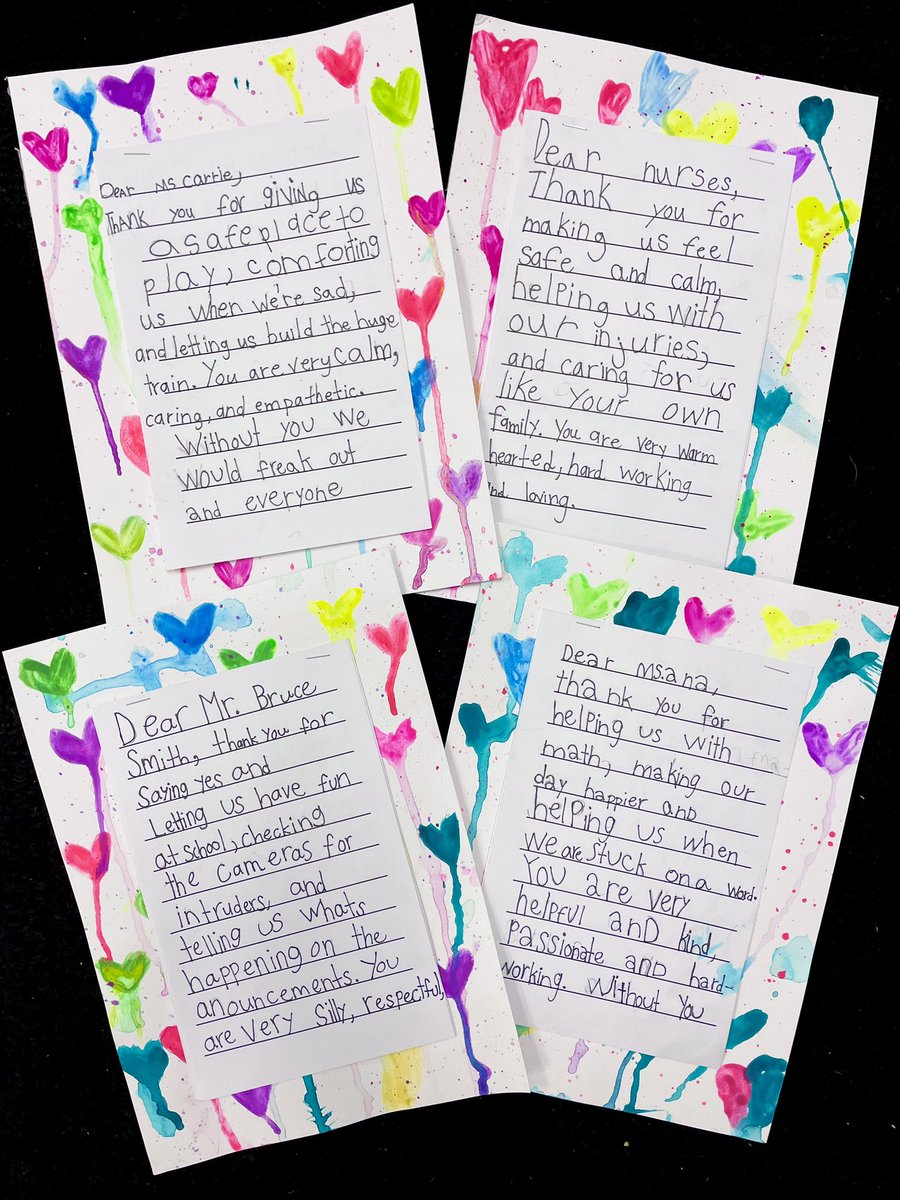 Dear Ms Carrie,
Thank you for giving us
a safe place to
play, comforting
us when we're sad,
and letting us build the huge
train. You are very calm,
caring, and empathetic.
Without you we
would freak out
and everyone
Dear nurses,
Thank you for
making us feel
safe and calm,
helping us with
our injuries,
and caring for us
like your own
family. You are very warm
hearted, hard working
and loving.
Dear Mr. Bruce
Smith, thank you for
Saying yes and
Letting us have fun
at school, checking
the cameras for
intruders, and
telling us whats
happening on the
anouncements. You
are very silly, respectful,
Dear Ms. ana,
thank you for
helping us with
math, making our
day happier and
helping us when
we are stuck on a word.
You are very
helpful and kind,
passionate and hard-
working. Without you